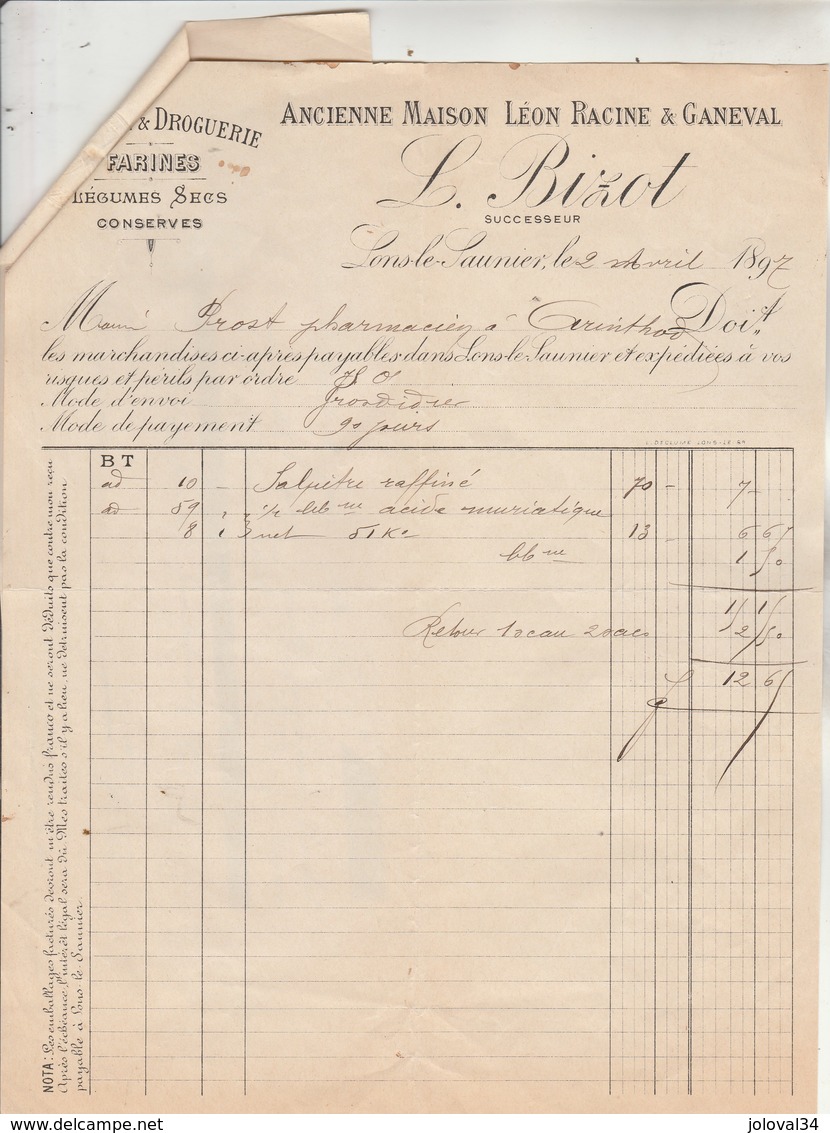 & DROGUERIE
FARINES
LÉGUMES SECS
CONSERVES
ANCIENNE MAISON LÉON RACINE & GANEVAL
L. Bizot
SUCCESSEUR
Lons-le-Saunier, le 2 Avril 1897
Prost pharmacien à Arinthod Doit
les marchandises ci-après payables dans Lons-le-Saunier et expédiées à vos
risques et périls par ordre
Mode d'envoi Grosdidier
Mode de payement 90 jours
L. DECLUME LONS-LE-S
BT
ad 10 – Salpêtre raffiné 70 – 7 –
ad 59 acide muriatique
8 net 51 Ko 13 – 6 65
1 50
15 15
Retour 2 50
12 65
NOTA: Les emballages facturés devront m'être rendus franco et ne seront déduits que contre mon reçu
Après l'échéance l'intérêt légal sera dû. Mes traites s'il y a lieu, ne détruisent pas la condition
payable à Lons-le-Saunier.
delcampe.net
joloval34